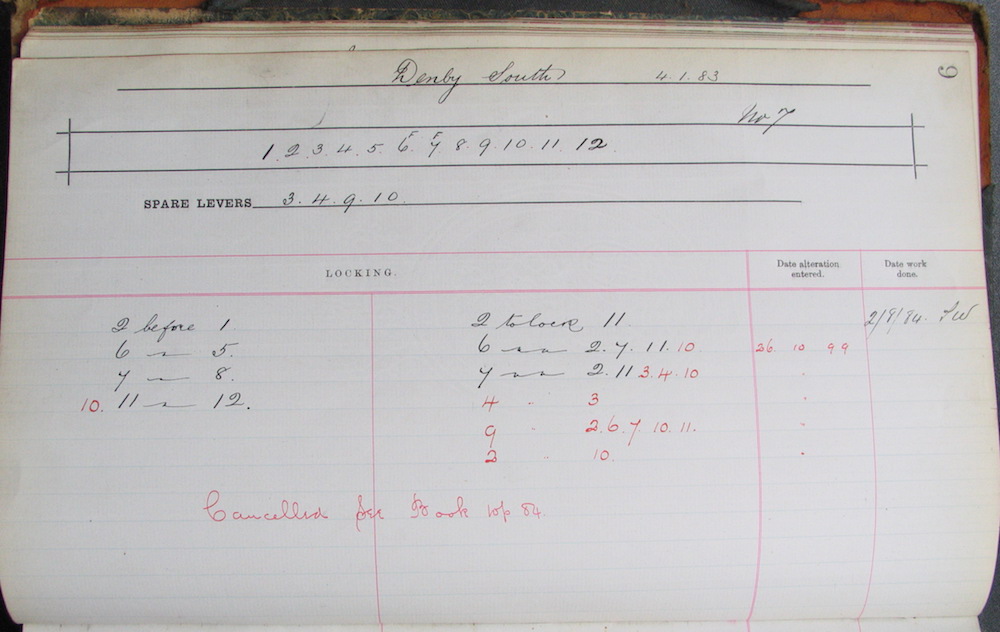 Denby South 4.1.83
6
No 7
1 2 3. 4. 5. 6. 7. 8. 9. 10. 11. 12
F F
SPARE LEVERS 3. 4. 9. 10.
LOCKING. Date alteration entered. Date work done.
2 before 1. 2 to lock 11. 2/8/84.
6 〃 5. 6 〃 〃 2. 7. 11. 10 26 10 99
7 〃 8. 7 〃 〃 2. 11 3. 4. 10 〃
10. 11 〃 12. 4 〃 3 〃
9 〃 2. 6. 7. 10. 11. 〃
2 〃 10. 〃
Cancelled See Book 10 p 84.